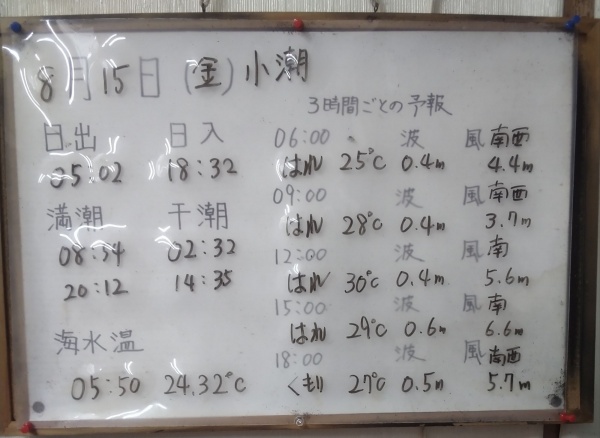 8月15日(金)小潮
日出 日入
05:02 18:32
満潮 干潮
08:34 02:32
20:12 14:35
海水温
05:50 24.32℃
3時間ごとの予報
06:00 波 風 南西
はれ 25℃ 0.4m 4.4m
09:00 波 風 南西
はれ 28℃ 0.4m 3.7m
12:00 波 風 南
はれ 30℃ 0.4m 5.6m
15:00 波 風 南
はれ 29℃ 0.6m 6.6m
18:00 波 風 南西
くもり 27℃ 0.5m 5.7m